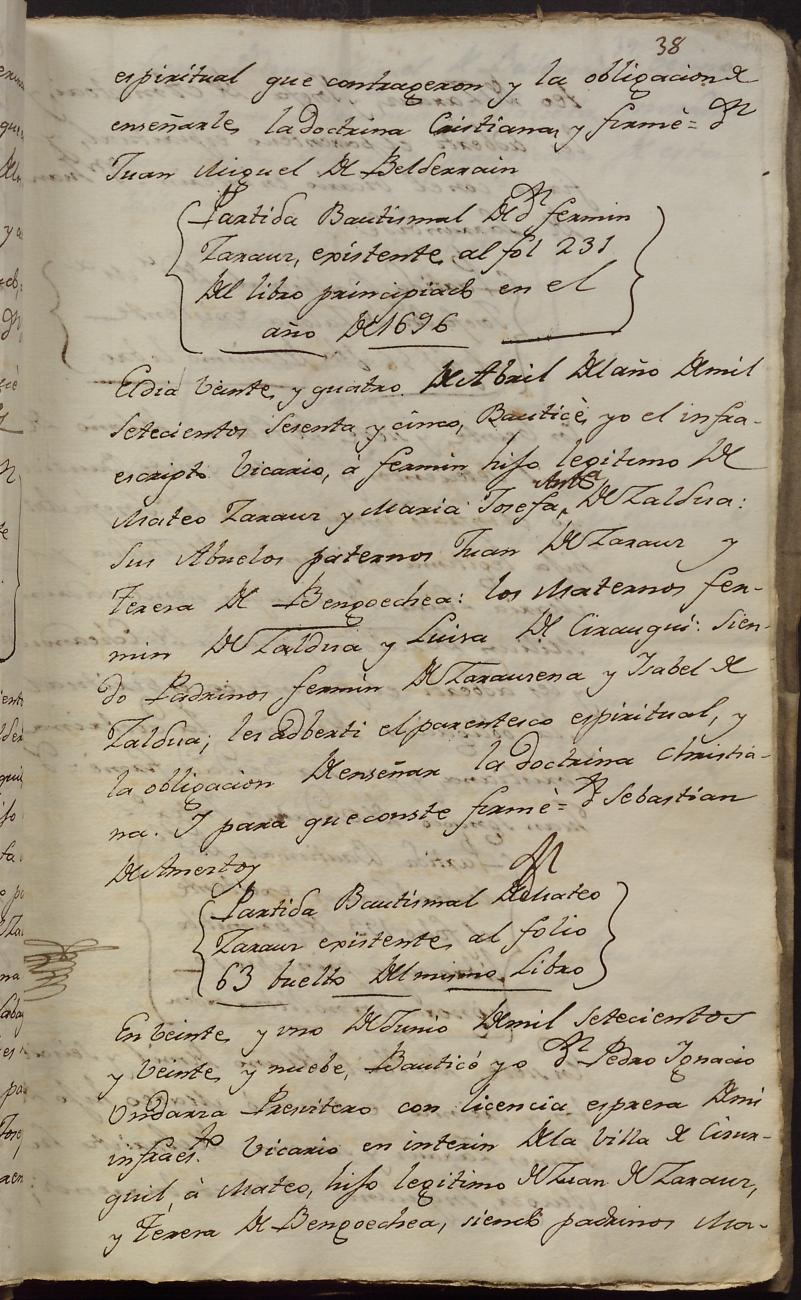 38
espiritual que contrageron y la obligacion de
enseñarle, la doctrina Cristiana, y firmè = Dn
Juan Miguel de Belderrain
Partida Bautismal de dn fermin
Zarauz, existente, al fol 231
del libro principiado en el
año de 1696
El dia veinte, y quatro de Abril del año de mil
setecientos sesenta y cinco, Bauticè, yo el infra-
escripto Vicario, à fermin hijo legitimo de
Mateo Zarauz y Maria Josefa, Anta de Zaldua:
sus Abuelos paternos Juan de Zarauz y
Teresa de Bengoechea: los Maternos fer-
min de Zaldua y Luisa de Cirauqui: sien-
do Padrinos fermin de Zarauzena y Isabel de
Zaldua; les adberti el parentesco espiritual, y
la obligacion de enseñar la doctrina Christia-
na. I para que conste firmè = Dn Sebastian
de Amestoy
Partida Bautismal de Mateo
Zarauz existente, al folio
63 buelto del mismo Libro
En veinte, y uno de Junio de mil setecientos
y veinte, y nuebe, Bauticé yo Dn Pedro Ignacio
Undarza Presvitero con licencia espresa de mi
infraesto. Vicario en interin de la Villa de Cizur-
quil, à Mateo, hijo legitimo de Juan de Zarauz,
y Teresa de Bengoechea, siendo padrinos Ma-